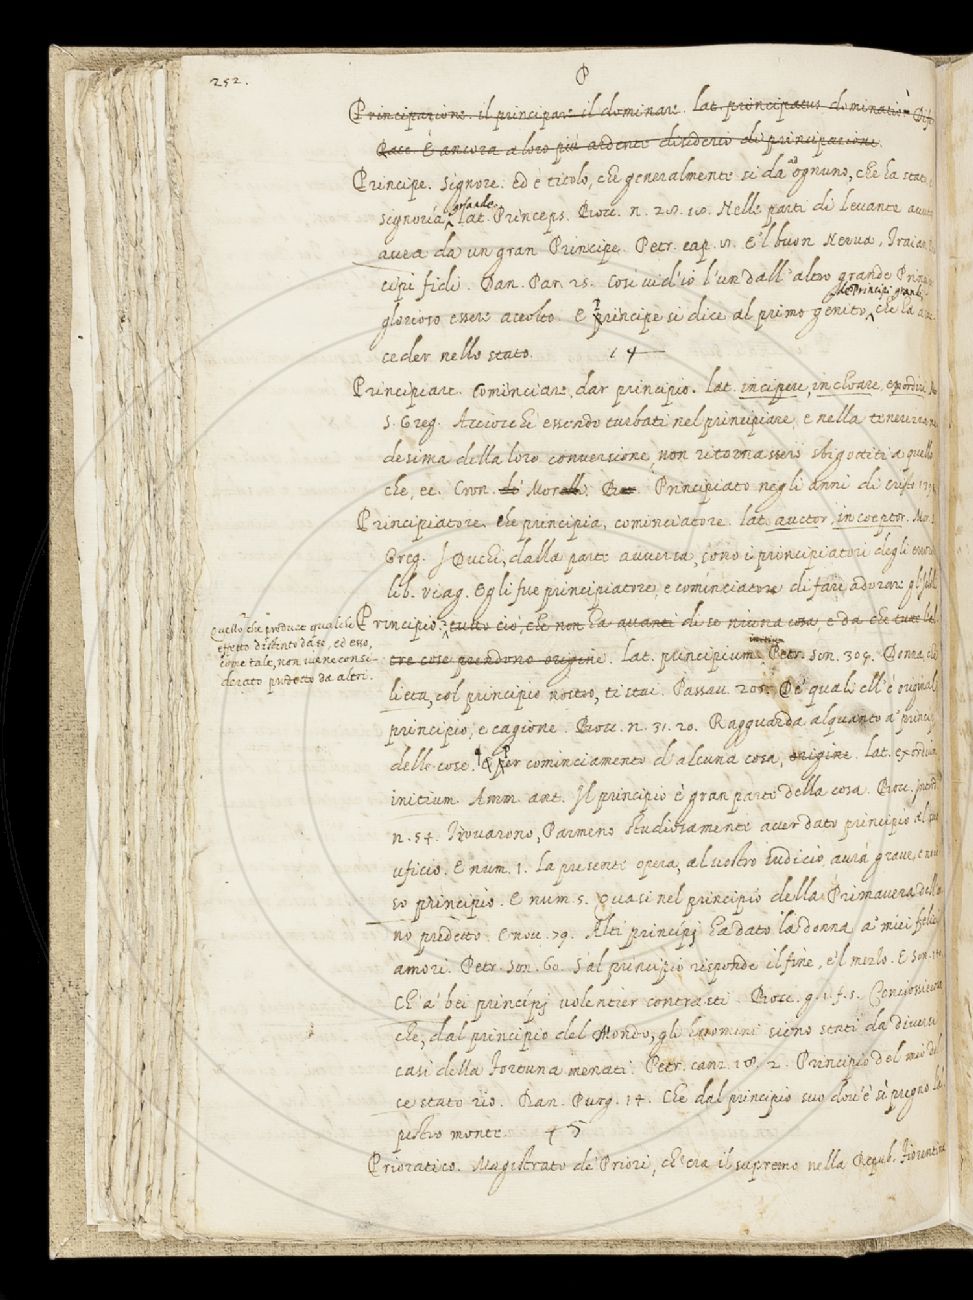 252.
P
Principazione. il principare il dominare. lat. principatus dominatio.
È ancora a loro più ardente disiderio di principazione.
Principe. Signore: Ed è titolo, che generalmente si dà ad ognuno, che ha stato, e
signoria grande. Lat. Princeps. Bocc. n. 28. 18. Nelle parti di levante
aveà da un gran Principe. Petr. cap. E 'l buon Nerva, Traian
cipi fidi. Dan. Par. 25. Così vid' io l' un dall' altro grande Principe
glorioso essere accolto. E Principe si dice al primo genito de Principi grandi, che ha a
ceder nello stato. 14
Principiare. Cominciare, dar principio. lat. incipere, inchoare, exordiri.
S. Greg. Acciocchè essendo turbati nel principiare, e nella tenerezza
desima della loro conversione, non ritornassero sbigottiti a quello
che, ec. Cron. Principiato negli anni di Cristo
Principiatore. Che principia, cominciatore. lat. auctor, inceptor. Mor. S.
Greg. I Duchi, dalla parte avversa, sono i principiatori degli
lib. viag. Egli fue principiatore, e cominciatore di fare adorare gl'
Quello, che produce qualche
effetto distinto da se, ed esso,
come tale, non viene consi-
derato prodotto da altri.
Principio. tutto ciò, che non ha avanti di se niuna cosa, e da che tutte l' al
tre cose prendono origine. Lat. principium. Petr. Son. 309. Donna, che
lieta, col principio nostro, ti stai. Passav. 208. De' quali ell' è original
principio, e cagione. Bocc. n. 31. 20. Ragguarda alquanto a' principj
delle cose. Per cominciamento d' alcuna cosa, origine. Lat. exordium
initium. Amm. ant. Il principio è gran parte della cosa. Bocc.
n. 54. Trovarono, Parmeno studiosamente aver dato principio al suo
uficio. E num. 1. La presente opera, al vostro iudicio, avrà grave, e
so principio. E num. 5. Quasi nel principio della Primavera dell'
no predetto. E nov. 79. Alti principj ha dato la donna a' miei felici
amori. Petr. Son. 60. S' al principio risponde il fine, e 'l mezzo. E Son.
Ch' a' bei principj volentier contrasti. Bocc. g. 1. f. 1. Conciossiecosa
che, dal principio del Mondo, gli huomini sieno stati da diversi
casi della Fortuna menati. Petr. canz. 18. 2. Principio del mio dol
ce stato rio. Dan. Purg. 14. Che dal principio suo dov' è sì pregno l' al
pestro monte. 15
Prioratico. Magistrato de' Priori, ch' era il supremo nella Repub. Fiorentina